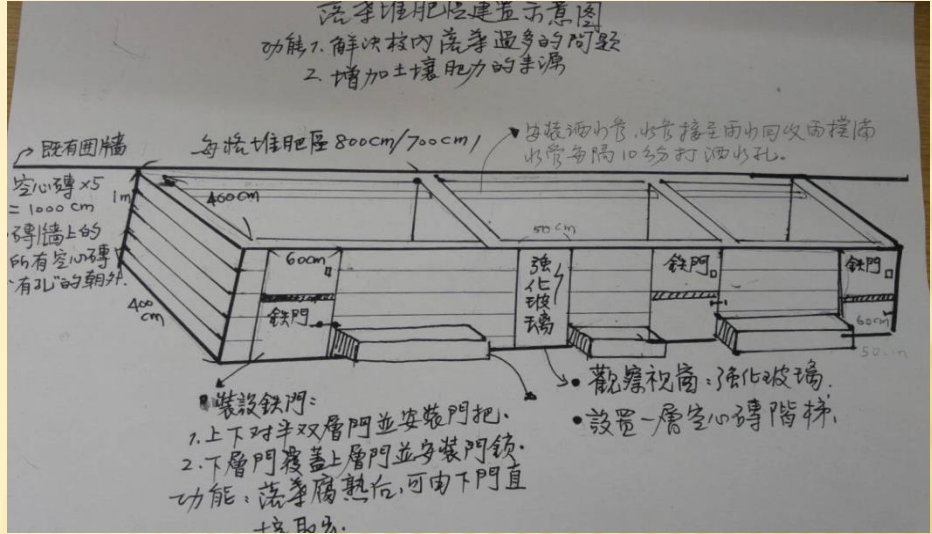 落葉堆肥區建置示意图
功能1. 解決校內落葉過多的問題
2. 增加土壤肥力的來源
既有囲墙
每格堆肥區800cm/700cm
安装洒水管,水管接至雨水回收雨撲滿
水管每隔10公分打洒水孔。
空心磚×5
=1000cm
磚牆上的
所有空心磚
"有孔"的朝外.
1m
400cm
400
cm
60cm
鉄門
50cm
強
化
玻
璃
鉄門
鉄門
60cm
50cm
裝設鉄門:
1. 上下对半双層門並安裝門把.
2. 下層門覆蓋上層門並安装門锁.
功能: 落葉腐熟后,可由下門直
接取出.
• 觀察視窗:強化玻璃.
• 設置一層空心磚階梯.